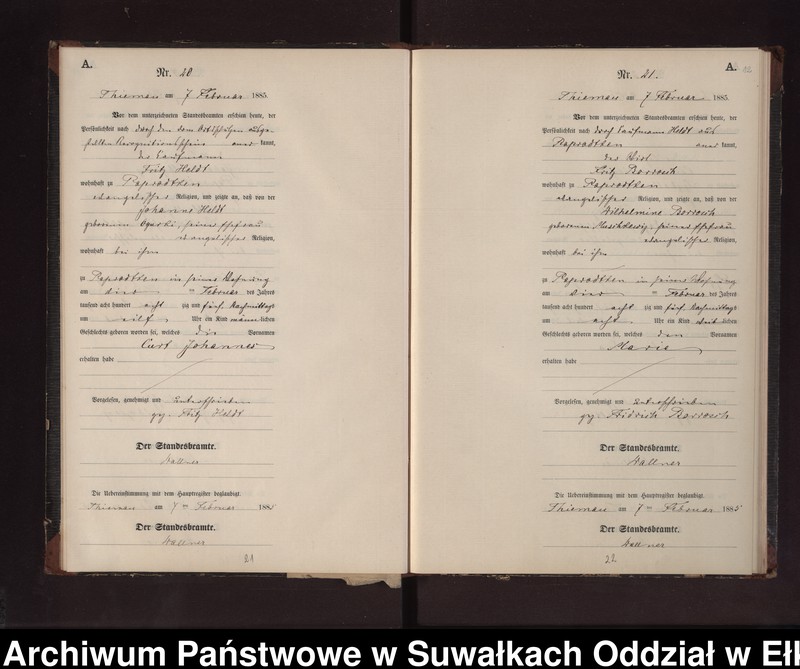 A.
Nr. 20.
Thiemau am 7 Februar 1885.
Vor dem unterzeichneten Standesbeamten erschien heute, der
Persönlichkeit nach durch den vom Ortsschulzen ausge-
stellten Recognitionsschein aner kannt,
der Kaufmann
Fritz Heldt
wohnhaft zu
evangelischer Religion, und zeigte an, daß von der
Johanne Heldt
geborenen seiner Ehefrau
evangelischer Religion,
wohnhaft bei ihm
zu in seiner Wohnung
am Februar des Jahres
tausend acht hundert acht zig und fünf Nachmittags
um eilf Uhr ein Kind männlichen
Geschlechts geboren worden sei, welches die Vornamen
Curt Johannes
erhalten habe
Vorgelesen, genehmigt und unterschrieben
gez. Fritz Heldt
Der Standesbeamte.
Wallner
Die Uebereinstimmung mit dem Hauptregister beglaubigt.
Thiemau am 7 ten Februar 1885
Der Standesbeamte.
Wallner
21
A.
Nr. 21.
Thiemau am 7 Februar 1885.
Vor dem unterzeichneten Standesbeamten erschien heute, der
Persönlichkeit nach durch Kaufmann Heldt aus
aner kannt,
der Wirt
Fritz
wohnhaft zu
evangelischer Religion, und zeigte an, daß von der
Wilhelmine
geborenen seiner Ehefrau
evangelischer Religion,
wohnhaft bei ihm
zu in seiner Wohnung
am Februar des Jahres
tausend acht hundert acht zig und fünf Nachmittags
um acht Uhr ein Kind weib lichen
Geschlechts geboren worden sei, welches den Vornamen
Marie
erhalten habe
Vorgelesen, genehmigt und unterschrieben
gez. Friedrich
Der Standesbeamte.
Wallner
Die Uebereinstimmung mit dem Hauptregister beglaubigt.
Thiemau am 7 ten Februar 1885
Der Standesbeamte.
Wallner
22
Archiwum Państwowe w Suwałkach Oddział w Eł